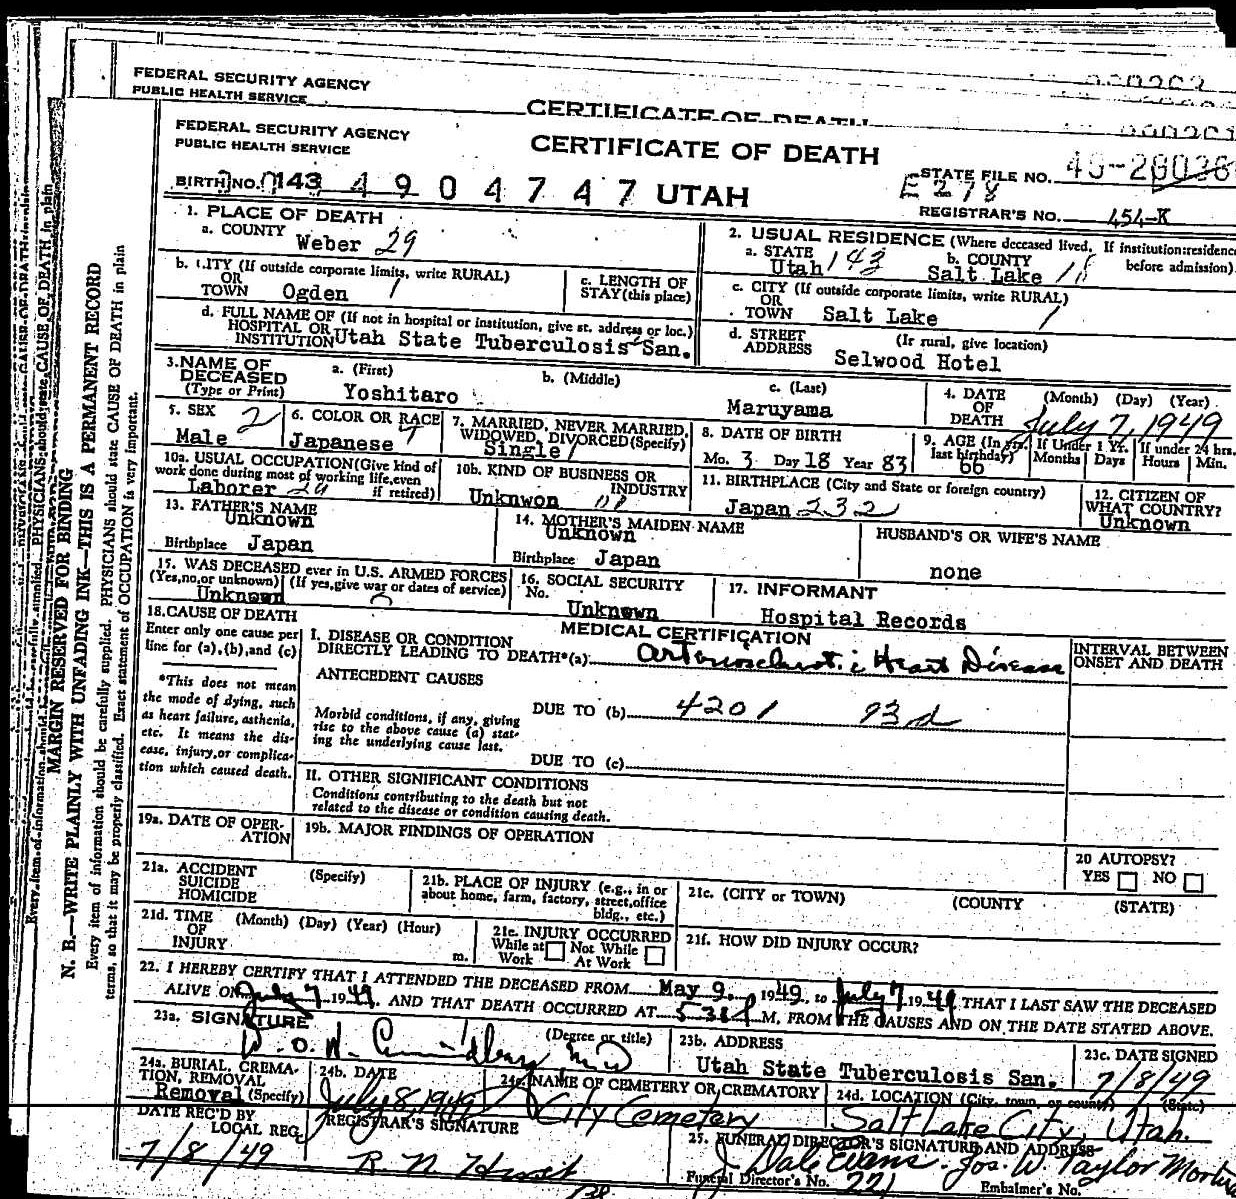 FEDERAL SECURITY AGENCY
PUBLIC HEALTH SERVICE
CERTIFICATE OF DEATH
FEDERAL SECURITY AGENCY
PUBLIC HEALTH SERVICE
CERTIFICATE OF DEATH
STATE FILE NO. 49-
BIRTH NO. 143 4904747 UTAH
E278
REGISTRAR'S NO. 454-K
1. PLACE OF DEATH
a. COUNTY
Weber 29
2. USUAL RESIDENCE (Where deceased lived. If institution: residence before admission).
a. STATE b. COUNTY
Utah 143 Salt Lake 18
b. CITY (If outside corporate limits, write RURAL)
OR
TOWN Ogden 1
c. LENGTH OF
STAY (this place)
c. CITY (If outside corporate limits, write RURAL)
OR
TOWN Salt Lake 1
d. FULL NAME OF (If not in hospital or institution, give st. address or loc.)
HOSPITAL OR
INSTITUTION Utah State Tuberculosis San.
d. STREET (If rural, give location)
ADDRESS Selwood Hotel
3. NAME OF DECEASED
(Type or Print)
a. (First) b. (Middle) c. (Last)
Yoshitaro Maruyama
4. DATE OF DEATH (Month) (Day) (Year)
July 7, 1949
5. SEX 2
Male
6. COLOR OR RACE
Japanese
7. MARRIED, NEVER MARRIED, WIDOWED, DIVORCED (Specify)
Single 1
8. DATE OF BIRTH
Mo. 3 Day 18 Year 83
9. AGE (In yrs. last birthday)
66
If Under 1 Yr. Months Days
If under 24 hrs. Hours Min.
10a. USUAL OCCUPATION (Give kind of work done during most of working life, even if retired)
Laborer
10b. KIND OF BUSINESS OR INDUSTRY
Unknwon
11. BIRTHPLACE (City and State or foreign country)
Japan 232
12. CITIZEN OF WHAT COUNTRY?
Unknown
13. FATHER'S NAME
Unknown
Birthplace Japan
14. MOTHER'S MAIDEN NAME
Unknown
Birthplace Japan
HUSBAND'S OR WIFE'S NAME
none
15. WAS DECEASED ever in U.S. ARMED FORCES
(Yes, no, or unknown) (If yes, give war or dates of service)
Unknown
16. SOCIAL SECURITY No.
Unknown
17. INFORMANT
Hospital Records
18. CAUSE OF DEATH
Enter only one cause per line for (a), (b), and (c)
MEDICAL CERTIFICATION
INTERVAL BETWEEN ONSET AND DEATH
I. DISEASE OR CONDITION
DIRECTLY LEADING TO DEATH*(a) Arteriosclerotic Heart Disease
*This does not mean the mode of dying, such as heart failure, asthenia, etc. It means the disease, injury, or complication which caused death.
ANTECEDENT CAUSES
DUE TO (b) 4201 93d
Morbid conditions, if any, giving rise to the above cause (a) stating the underlying cause last.
DUE TO (c)
II. OTHER SIGNIFICANT CONDITIONS
Conditions contributing to the death but not related to the disease or condition causing death.
19a. DATE OF OPERATION
19b. MAJOR FINDINGS OF OPERATION
20 AUTOPSY?
YES NO
21a. ACCIDENT SUICIDE HOMICIDE (Specify)
21b. PLACE OF INJURY (e.g., in or about home, farm, factory, street, office bldg., etc.)
21c. (CITY or TOWN) (COUNTY (STATE)
21d. TIME OF INJURY (Month) (Day) (Year) (Hour) m.
21e. INJURY OCCURRED
While at Work Not While At Work
21f. HOW DID INJURY OCCUR?
22. I HEREBY CERTIFY THAT I ATTENDED THE DECEASED FROM May 9, 1949, to July 7 1949 THAT I LAST SAW THE DECEASED
ALIVE ON July 7 1949, AND THAT DEATH OCCURRED AT 5 38 P M, FROM THE CAUSES AND ON THE DATE STATED ABOVE.
23a. SIGNATURE (Degree or title)
M D
23b. ADDRESS
Utah State Tuberculosis San.
23c. DATE SIGNED
7/8/49
24a. BURIAL, CREMATION, REMOVAL
Removal (Specify)
24b. DATE
July 8, 1949
24c. NAME OF CEMETERY OR CREMATORY
City Cemetery
24d. LOCATION (City, town, or county) (State)
Salt Lake City, Utah.
DATE REC'D BY LOCAL REG.
7/8/49
REGISTRAR'S SIGNATURE
25. FUNERAL DIRECTOR'S SIGNATURE AND ADDRESS
J Dale Evans. Jos. W. Taylor
Funeral Director's No. 221 Embalmer's No.
MARGIN RESERVED FOR BINDING
N. B.—WRITE PLAINLY WITH UNFADING INK—THIS IS A PERMANENT RECORD
Every item of information should be carefully supplied. PHYSICIANS should state CAUSE OF DEATH in plain
terms, so that it may be properly classified. Exact statement of OCCUPATION is very important.